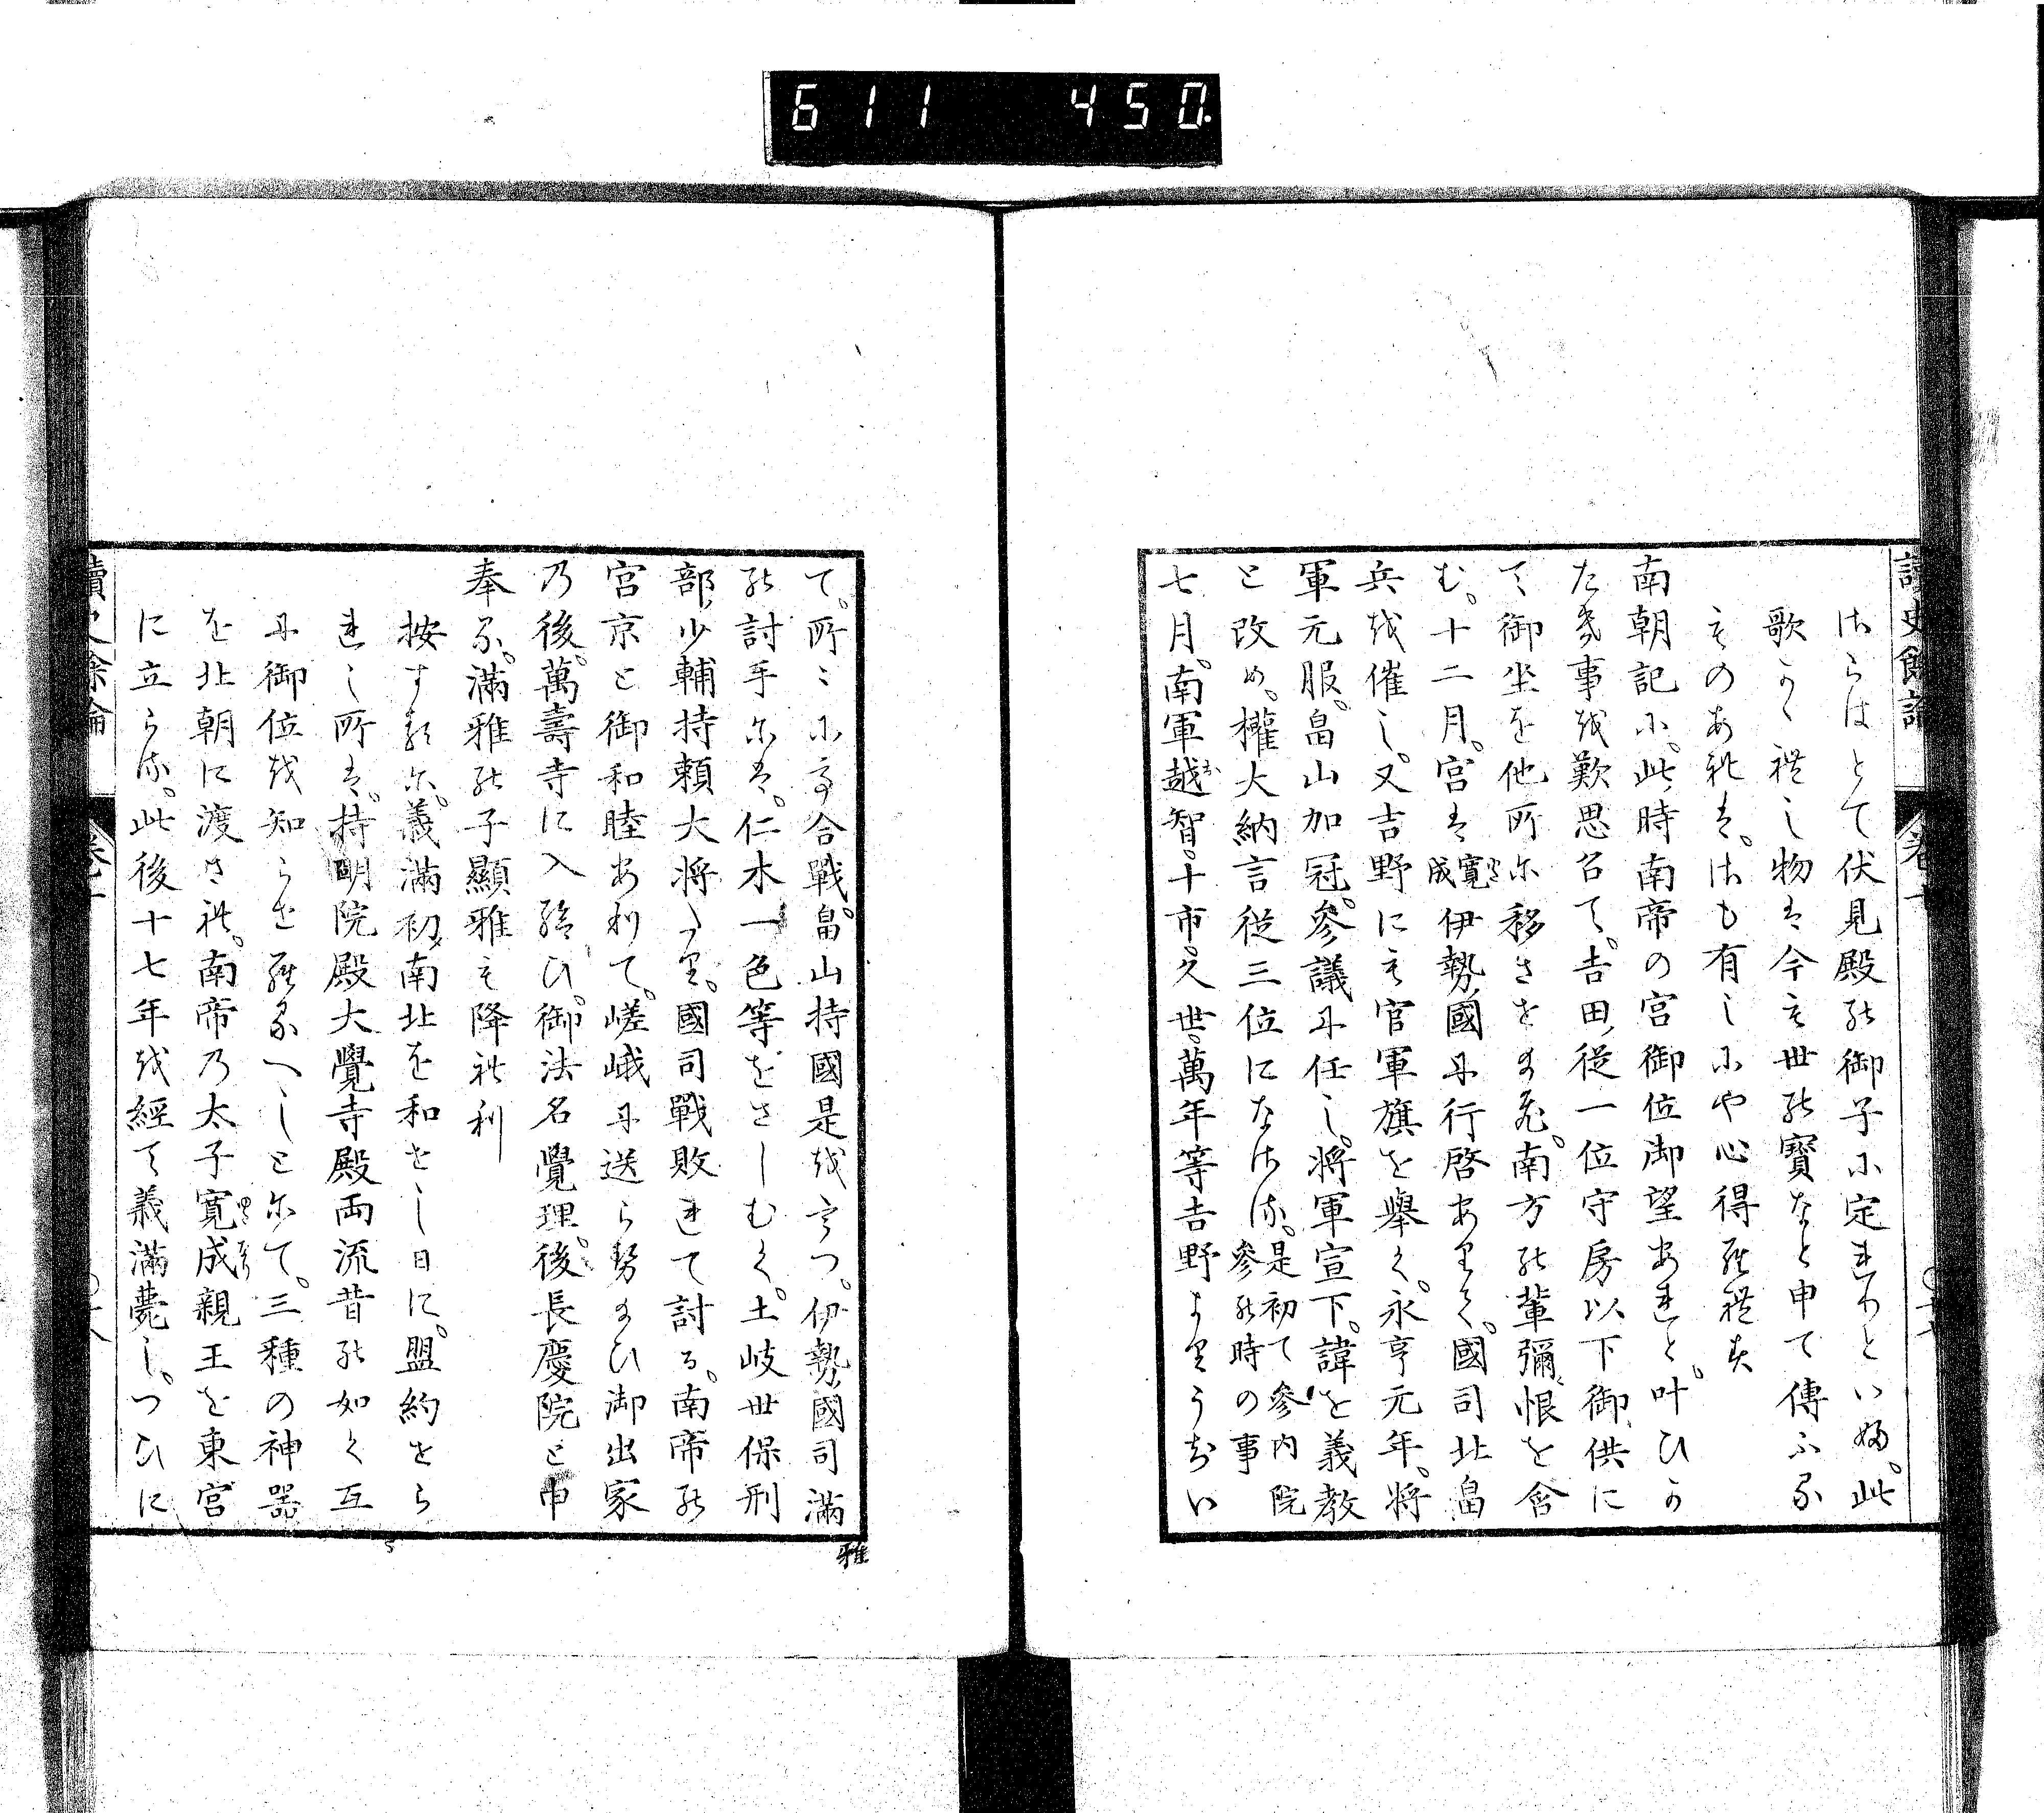 611 450
讀史餘論 卷十 〇十七
さらはとて伏見殿の御子に定まりきといふ。此
歌かくれし物は今も世の寶なと申て傳ふる
ものあれは。さも有しにや心得られす
南朝記に。此時南帝の宮御位御望あれと。叶ひか
たき事を歎思召て。吉田從一位守房以下御供に
て御坐を他所に移させ給ふ。南方の輩彌恨を含
む。十二月。宮は寛成伊勢國に行啓ありて。國司北畠
兵を催し。又吉野にも官軍旗を擧く。永亨元年。將
軍元服。畠山加冠。參議に任し。將軍宣下。諱を義教
と改め。權大納言從三位になさる。是初て參内院參の時の事
七月。南軍越智。十市。久世。萬年等吉野よりうちい
て。所々に而合戰。畠山持國是をうつ。伊勢國司滿
雅
の討手には。仁木一色等をさしむく。土岐世保刑
部少輔持頼大將たり。國司戰敗れて討る。南帝の
宮京と御和睦ありて。嵯峨に送らせ給ひ御出家
乃後。萬壽寺に入給ひ。御法名覺理。後長慶院と申
奉る。滿雅の子顯雅も降社利
按するに。義滿初南北を和せし日に。盟約せら
れし所は。持明院殿大覺寺殿両流昔の如く互
に御位を知らせらるへしとにて。三種の神器
を北朝に渡され。南帝乃太子寛成親王を東宮
に立らる。此後十七年を經て義滿薨し。つひに
讀史餘論 卷十 〇十八